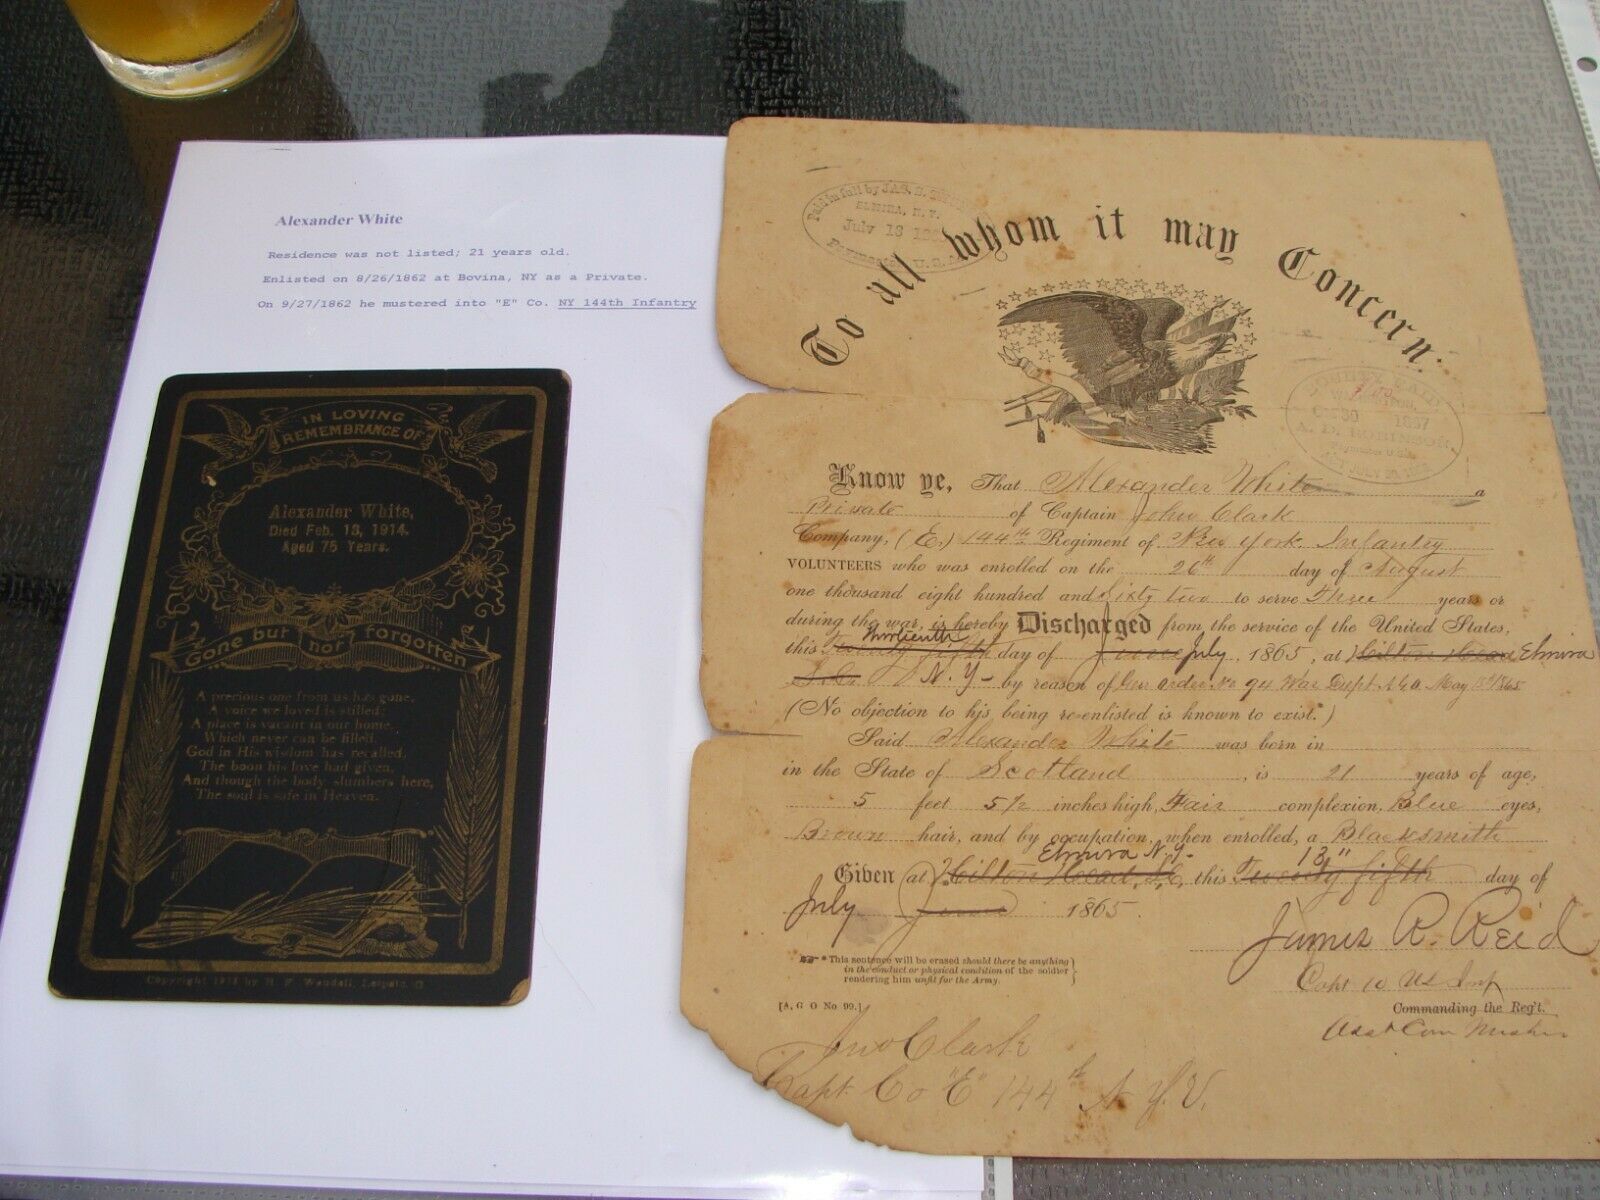 Alexander White
Residence was not listed; 21 years old.
Enlisted on 8/26/1862 at Bovina, NY as a Private.
On 9/27/1862 he mustered into "E" Co. NY 144th Infantry
IN LOVING
REMEMBRANCE OF
Alexander White,
Died Feb. 13, 1914.
Aged 75 Years.
Gone but not forgotten
A precious one from us has gone,
A voice we loved is stilled;
A place is vacant in our home,
Which never can be filled.
God in His wisdom has recalled,
The boon his love had given,
And though the body slumbers here,
The soul is safe in Heaven.
Copyright by H. F. Wendell, Leipsic, O
Paid in full by JAS. B.
ELMIRA, N. Y.
July 13
Paymaster U. S. A.
To all whom it may Concern:
BOUNTY PAID
WASHINGTON,
30 1867
A. D. ROBINSON,
Paymaster U.S.A.
ACT JULY 28, 1866
Know ye, That Alexander White a
Private of Captain John Clark
Company, (E.) 144th Regiment of New York Infantry
VOLUNTEERS who was enrolled on the 26th day of August
one thousand eight hundred and Sixty two to serve Three years or
during the war, is hereby Discharged from the service of the United States,
Thirteenth
this Twenty fifth day of June July, 1865, at Hilton Head Elmira
S.C. N. Y- by reason of Gen Order No 94 War Dept. A G O May 15th/1865
(No objection to his being re-enlisted is known to exist.*)
Said Alexander White was born in
in the State of Scotland, is 21 years of age,
5 feet 5 1/2 inches high, Fair complexion, Blue eyes,
Brown hair, and by occupation, when enrolled, a Blacksmith
Elmira N. Y- 13"
Given at Hilton Head, S.C, this Twenty fifth day of
July June 1865.
James R. Reid
Capt 10 US Inf
Commanding the Reg't.
Asst Com Muster
* This sentence will be erased should there be anything
in the conduct or physical condition of the soldier
rendering him unfit for the Army.
[A. G O No 99.]
Jno Clark
Capt Co "E" 144th N. Y. V.